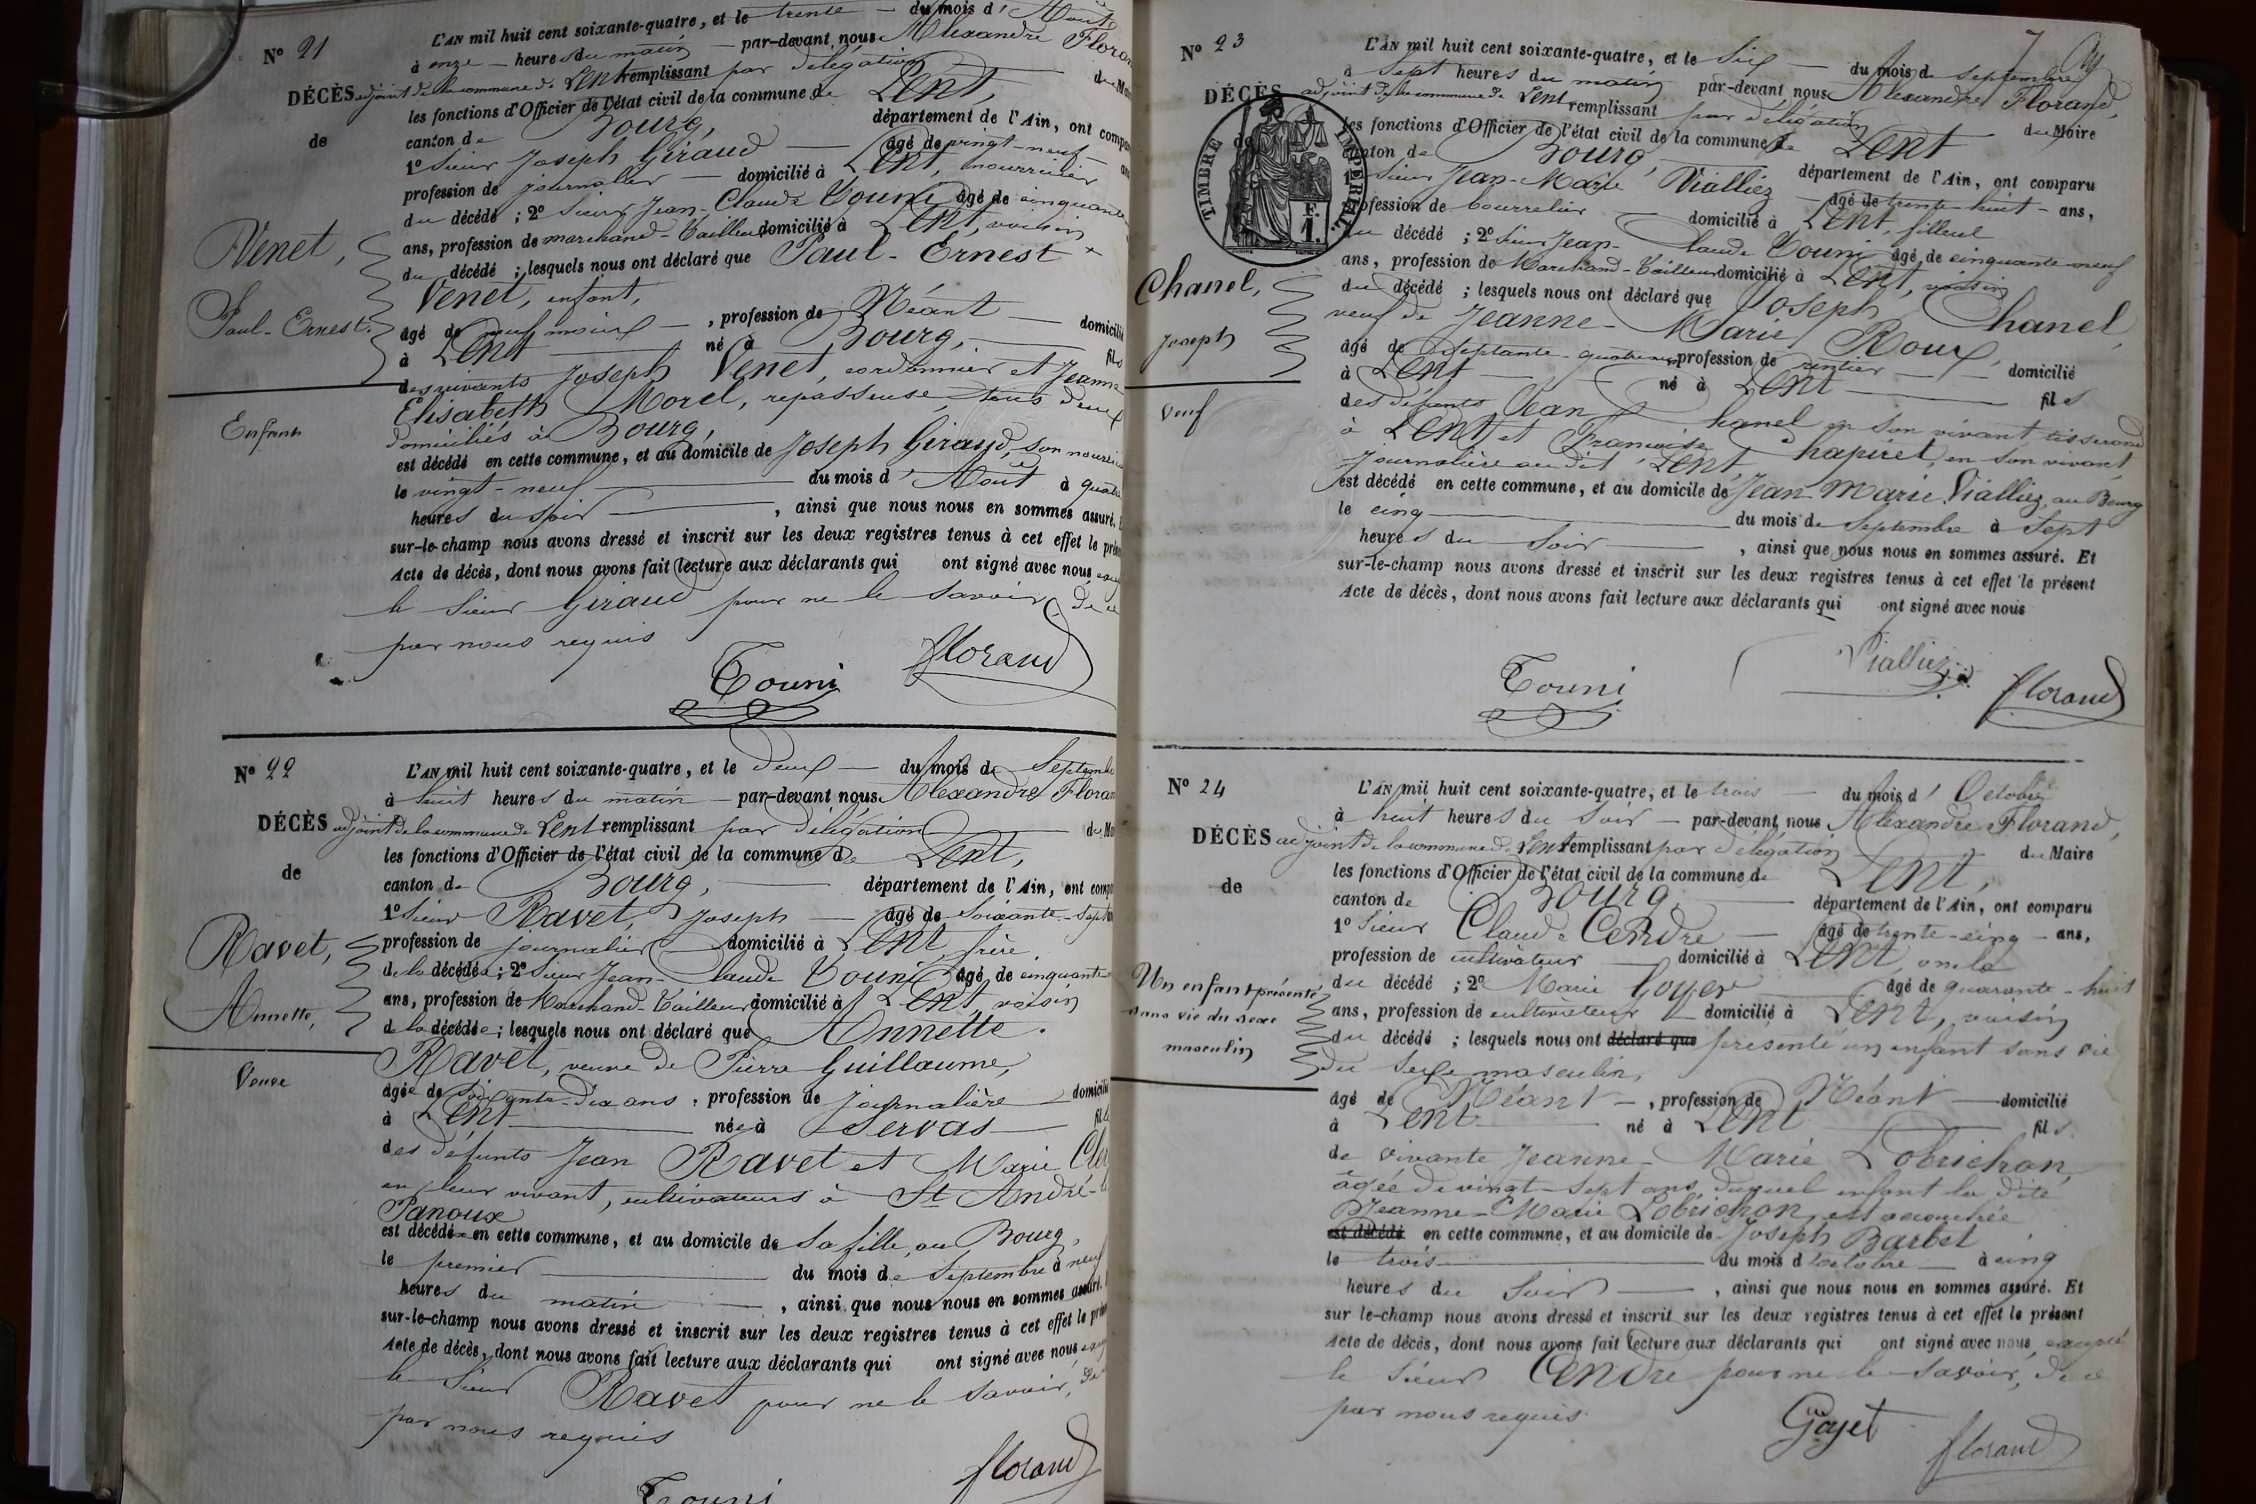 N° 21
L'AN mil huit cent soixante-quatre, et le trente du mois d'Août
à onze heures du matin par-devant nous Alexandre Floran
DÉCÈS adjoint de la commune de Lent remplissant par délégation du
les fonctions d'Officier de l'état civil de la commune de Lent,
de
canton de Bourg, département de l'Ain, ont compa
1° Sieur Joseph Giraud âgé de vingt-neuf
profession de journalier domicilié à Lent, nourricier
du décédé ; 2° Sieur Jean-Claude Touni âgé de cinquante
ans, profession de marchand-tailleur domicilié à Lent, voisin
Venet,
Paul-Ernest.
du décédé ; lesquels nous ont déclaré que Paul-Ernest
Venet, enfant,
âgé de neuf mois, profession de Néant domicilié
à Lent né à Bourg, fils
des vivants Joseph Venet, cordonnier et Jeanne
Enfant
Elisabeth Morel, repasseuse, tous deux
domiciliés à Bourg,
est décédé en cette commune, et au domicile de Joseph Giraud, son
le vingt-neuf du mois d'Août à quatre
heures du soir, ainsi que nous nous en sommes assuré.
sur-le-champ nous avons dressé et inscrit sur les deux registres tenus à cet effet le
Acte de décès, dont nous avons fait lecture aux déclarants qui ont signé avec nous
le Sieur Giraud pour ne le savoir, de ce
par nous requis
Touni Florand
N° 22
L'AN mil huit cent soixante-quatre, et le deux du mois de Septembre
à huit heures du matin par-devant nous Alexandre Floran
DÉCÈS adjoint de la commune de Lent remplissant par délégation du
les fonctions d'Officier de l'état civil de la commune de Lent,
de
canton de Bourg, département de l'Ain, ont
1° Sieur Ravet, Joseph âgé de soixante-sept
profession de journalier domicilié à Lent, frère
Ravet,
Annette,
de la décédée ; 2° Sieur Jean Claude Touni âgé de cinquante
ans, profession de Marchand-Tailleur domicilié à Lent, voisin
de la décédée ; lesquels nous ont déclaré que Annette
Ravet, veuve de Pierre Guillaume,
Veuve
âgée de soixante-dix ans, profession de journalière domicilié
à Lent née à Servas
des défunts Jean Ravet et Marie
en leur vivant, cultivateurs à St André-le
Panoux
est décédée en cette commune, et au domicile de sa fille, au Bourg,
le premier du mois de Septembre à neuf
heures du matin, ainsi que nous nous en sommes assuré.
sur-le-champ nous avons dressé et inscrit sur les deux registres tenus à cet effet le
Acte de décès, dont nous avons fait lecture aux déclarants qui ont signé avec nous
le Sieur Ravet pour ne le savoir, de
par nous requis
Touni Florand
N° 23
L'AN mil huit cent soixante-quatre, et le six du mois de septembre
à sept heures du matin par-devant nous Alexandre Florand,
DÉCÈS adjoint de la commune de Lent remplissant par délégation du Maire
les fonctions d'Officier de l'état civil de la commune de Lent
de
TIMBRE IMPERIAL
F. 1.
canton de Bourg, département de l'Ain, ont comparu
1° Sieur Jean-Marie Vialliez âgé de trente-huit ans,
profession de bourrelier domicilié à Lent, filleul
du décédé ; 2° Sieur Jean-Claude Touni âgé de cinquante-neuf
ans, profession de Marchand-Tailleur domicilié à Lent, voisin
Chanel,
Joseph
du décédé ; lesquels nous ont déclaré que Joseph Chanel,
veuf de Jeanne-Marie Roux,
âgé de septante-quatre ans, profession de rentier domicilié
à Lent né à Lent fils
Veuf
des défunts Jean Chanel en son vivant tisserand
à Lent et Françoise Chapiret, en son vivant
journalière au dit Lent
est décédé en cette commune, et au domicile de Jean Marie Vialliez, au Bourg
le cinq du mois de Septembre à sept
heures du soir, ainsi que nous nous en sommes assuré. Et
sur-le-champ nous avons dressé et inscrit sur les deux registres tenus à cet effet le présent
Acte de décès, dont nous avons fait lecture aux déclarants qui ont signé avec nous
Touni Vialliez Florand
N° 24
L'AN mil huit cent soixante-quatre, et le trois du mois d'Octobre
à huit heures du soir par-devant nous Alexandre Florand,
DÉCÈS adjoint de la commune de Lent remplissant par délégation du Maire
les fonctions d'Officier de l'état civil de la commune de Lent,
de
canton de Bourg, département de l'Ain, ont comparu
1° Sieur Claude Cendre âgé de trente-cinq ans,
profession de cultivateur domicilié à Lent, oncle
Un enfant présenté
sans vie du sexe
masculin
du décédé ; 2° Marie Goyet âgé de quarante-huit
ans, profession de cultivateur domicilié à Lent, voisin
du décédé ; lesquels nous ont déclaré que présenté un enfant sans vie
du sexe masculin,
âgé de Néant, profession de Néant domicilié
à Lent né à Lent fils
de vivante Jeanne-Marie Lobrichon,
âgée de vingt-sept ans, duquel enfant la dite
Jeanne-Marie Lobrichon, est accouchée
est décédé en cette commune, et au domicile de Joseph Barbet
le trois du mois d'octobre à cinq
heures du soir, ainsi que nous nous en sommes assuré. Et
sur le-champ nous avons dressé et inscrit sur les deux registres tenus à cet effet le présent
Acte de décès, dont nous avons fait lecture aux déclarants qui ont signé avec nous, excepté
le Sieur Cendre pour ne le savoir, de ce
par nous requis
Gojet Florand